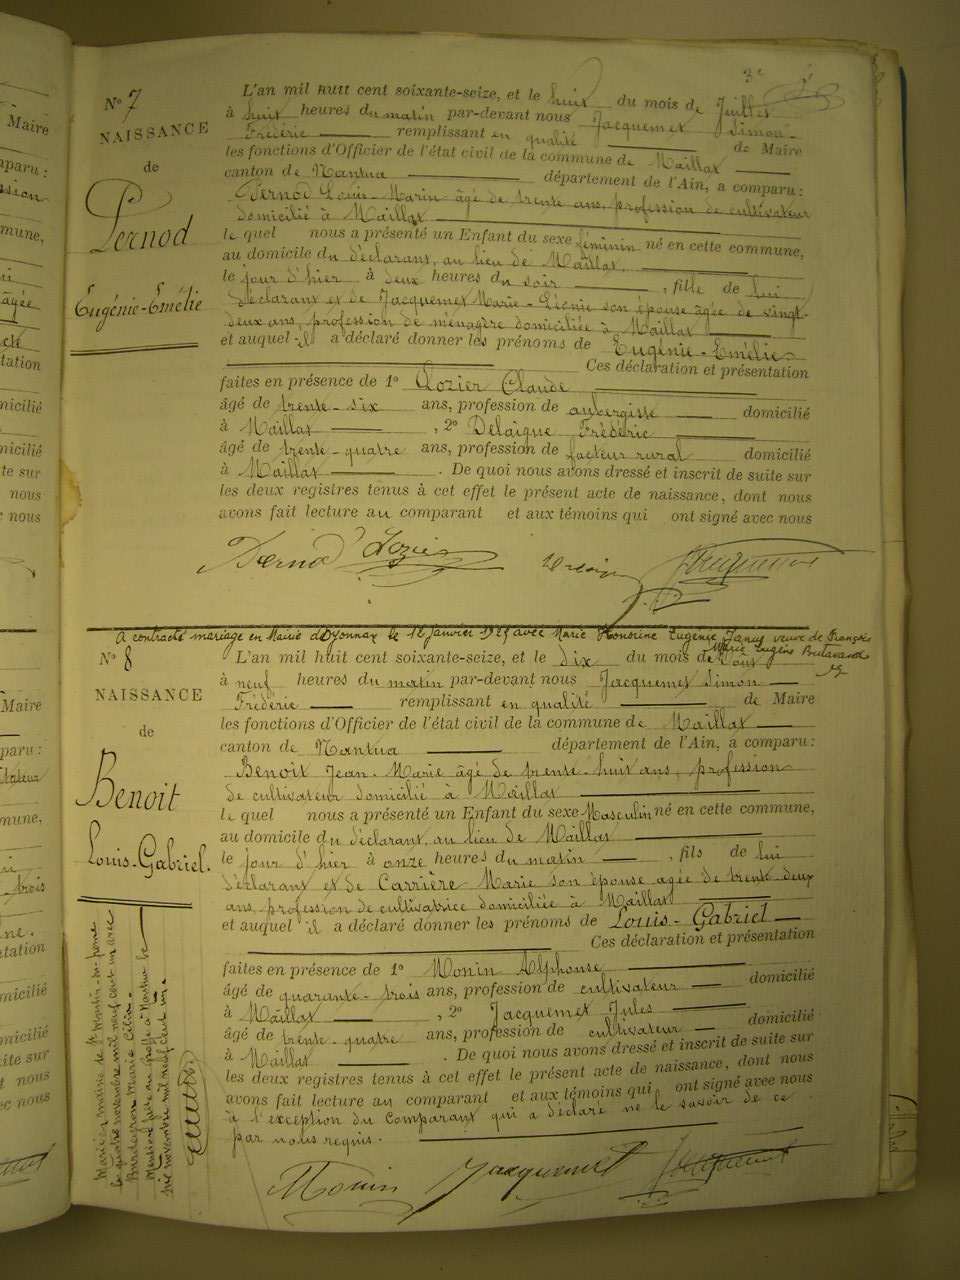 3e
N° 7
NAISSANCE
de
Pernod
Eugénie-Emélie
L'an mil huit cent soixante-seize, et le huit du mois de Juillet
à huit heures du matin par-devant nous Jacquemet Simon-
Frédéric remplissant en qualité de Maire
les fonctions d'Officier de l'état civil de la commune de Maillat
canton de Nantua département de l'Ain, a comparu:
Pernod Louis-Marin âgé de trente ans, profession de cultivateur
domicilié à Maillat
le quel nous a présenté un Enfant du sexe féminin né en cette commune,
au domicile du déclarant, au lieu de Maillat
le jour d'hier à deux heures du soir, fille de lui
déclarant et de Jacquemet Marie-Léonie son épouse âgée de vingt-
deux ans, profession de ménagère domiciliée à Maillat
et auquel il a déclaré donner les prénoms de Eugénie-Emélie
Ces déclaration et présentation
faites en présence de 1° Lozier Claude
âgé de trente-six ans, profession de aubergiste domicilié
à Maillat, 2° Delaigue Frédéric
âgé de trente-quatre ans, profession de facteur rural domicilié
à Maillat. De quoi nous avons dressé et inscrit de suite sur
les deux registres tenus à cet effet le présent acte de naissance, dont nous
avons fait lecture au comparant et aux témoins qui ont signé avec nous
Pernod Lozier Jacquemet
A contracté mariage en Mairie d'Oyonnax le 12 Janvier avec Marie Honorine Eugénie veuve de François
Marie Eugène
N° 8
NAISSANCE
de
Benoit
Louis-Gabriel.
L'an mil huit cent soixante-seize, et le dix du mois de Août
à neuf heures du matin par-devant nous Jacquemet Simon
Frédéric remplissant en qualité de Maire
les fonctions d'Officier de l'état civil de la commune de Maillat
canton de Nantua département de l'Ain, a comparu:
Benoit Jean-Marie âgé de trente-huit ans, profession
de cultivateur domicilié à Maillat
le quel nous a présenté un Enfant du sexe Masculin né en cette commune,
au domicile du déclarant, au lieu de Maillat
le jour d'hier à onze heures du matin, fils de lui
déclarant et de Carrière Marie son épouse agée de trente-deux
ans, profession de cultivatrice domiciliée à Maillat
et auquel il a déclaré donner les prénoms de Louis-Gabriel
Ces déclaration et présentation
faites en présence de 1° Monin Alphonse
âgé de quarante-trois ans, profession de cultivateur domicilié
à Maillat, 2° Jacquemet Jules
âgé de trente-quatre ans, profession de cultivateur domicilié
à Maillat. De quoi nous avons dressé et inscrit de suite sur
les deux registres tenus à cet effet le présent acte de naissance, dont nous
avons fait lecture au comparant et aux témoins qui ont signé avec nous
à l'exception du Comparant qui a déclaré ne le savoir de ce
par nous requis.
Monin Jacquemet Jacquemet
Marié en mairie de St Martin-du-frêne
le quatre novembre mil neuf cent un avec
Marie Célina.
Mention faite au Greffe à Nantua le
six novembre mil neuf cent un.